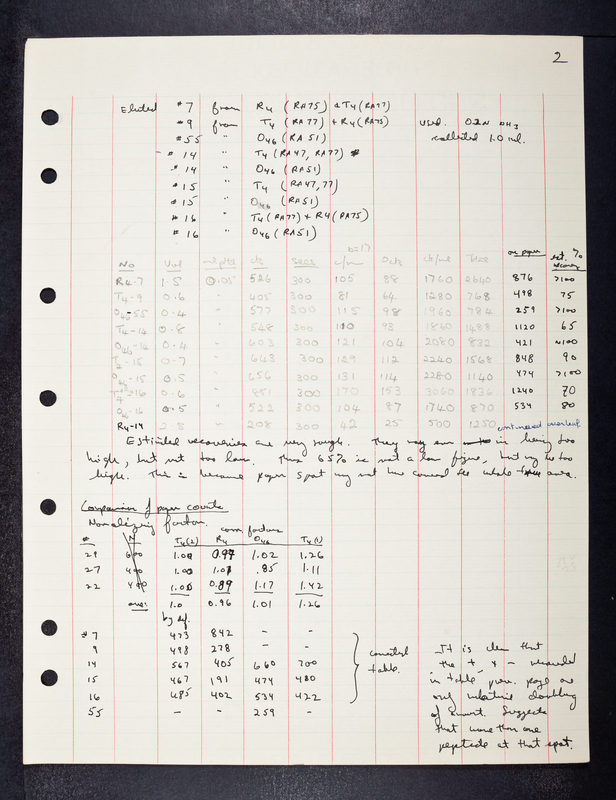 2
Eluted #7 from R4 (RA75) & T4 (RA77)
#9 from T4 (RA77) + R4 (RA75) used 0.2N NH3
#55 " O46 (RA51) collected 1.0 ml.
#14 " T4 (RA47, RA77)
#14 " O46 (RA51)
#15 " T4 (RA47, 77)
#15 " O46 (RA51)
#16 " T4 (RA77) + R4 (RA75)
#16 " O46 (RA51)
b=17
No Vol cts secs c/m Total on paper est. % recovery
R4-7 1.5 0.05 526 300 105 88 1760 2640 876 >100
T4-9 0.6 405 300 81 64 1280 768 498 75
O46-55 0.4 577 300 115 98 1960 784 259 >100
T4-14 0.8 548 300 110 93 1860 1488 1120 65
O46-14 0.4 603 300 121 104 2080 832 421 ~100
T4-15 0.7 643 300 129 112 2240 1568 848 90
O46-15 0.5 656 300 131 114 2280 1140 474 >100
16 0.6 851 300 170 153 3060 1836 1240 70
O46-16 0.5 522 300 104 87 1740 870 534 80
R4-14 2.5 208 300 42 25 500 1250 continued overleaf
Estimated recoveries are very rough. They may err in being too
high, but not too low. Thus 65% is not a low figure, but may be too
high. This is because paper spot may not have covered the whole area.
Comparison of paper counts
Normalizing factors.
corr. factors
# N T4(2) R4 O46 T4(1)
29 600 1.00 0.97 1.02 1.26
27 400 1.00 1.01 .85 1.11
22 400 1.00 0.89 1.17 1.42
ave: 1.0 0.96 1.01 1.26
by def.
#7 473 842 - -
9 498 278 - -
14 567 405 660 700
15 467 191 474 480
16 485 402 534 422
55 - - 259 -
corrected
table.
It is clear that
the + & - recorded
in table prev. page are
only relative doubling
of amount. Suggests
that more than one
peptide at that spot.